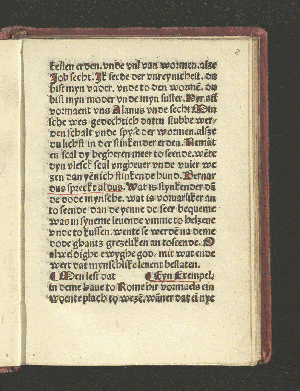 kesten erden. vnde vul van wormen. alze
Job secht. Ik seede der vnreynicheit. du
bist myn vader. vnde to den wormē. du
bist myn moder vnde myn suster. Hyr aff
vormaent vns Alanus vnde secht Myn
sche wes gedechtich dattu stubbe wer-
den schalt vnde spyse der wormen. alze
du lichst in der stinkender erden. Nemāt
en scal dy begheren meer to seende. wēte
dyn vlesck scal vngheuer vnde vuler we
zen dan yēnich stinkende hund. Bernar
dus spreckt aldus. Wat is stynkender dā
de dode mynsche. wat is vorvarliker an
to seende dan de yenne de seer bequeme
was in syneme leuende vmme to helzene
vnde to kussen. wente se werdē na deme
dode ghantz grezeliken an toseende. O
alweldighe ewyghe god. mit wat ende
wert dat mynschlike leuent beslaten.
Men lest dat Eyn Exempel.
in deme haue to Rome hir vormaels eyn
wonte plach to wezē. wāner dat en nye